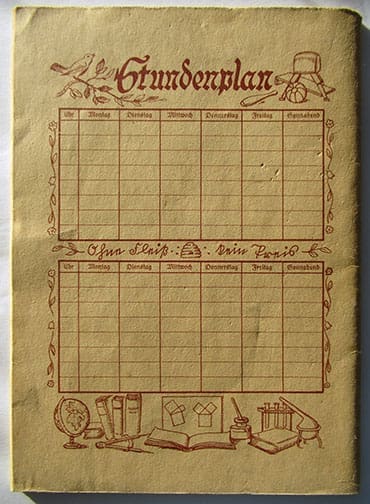 Stundenplan
Uhr Montag Dienstag Mittwoch Donnerstag Freitag Sonnabend
Ohne Fleiß kein Preis
Uhr Montag Dienstag Mittwoch Donnerstag Freitag Sonnabend